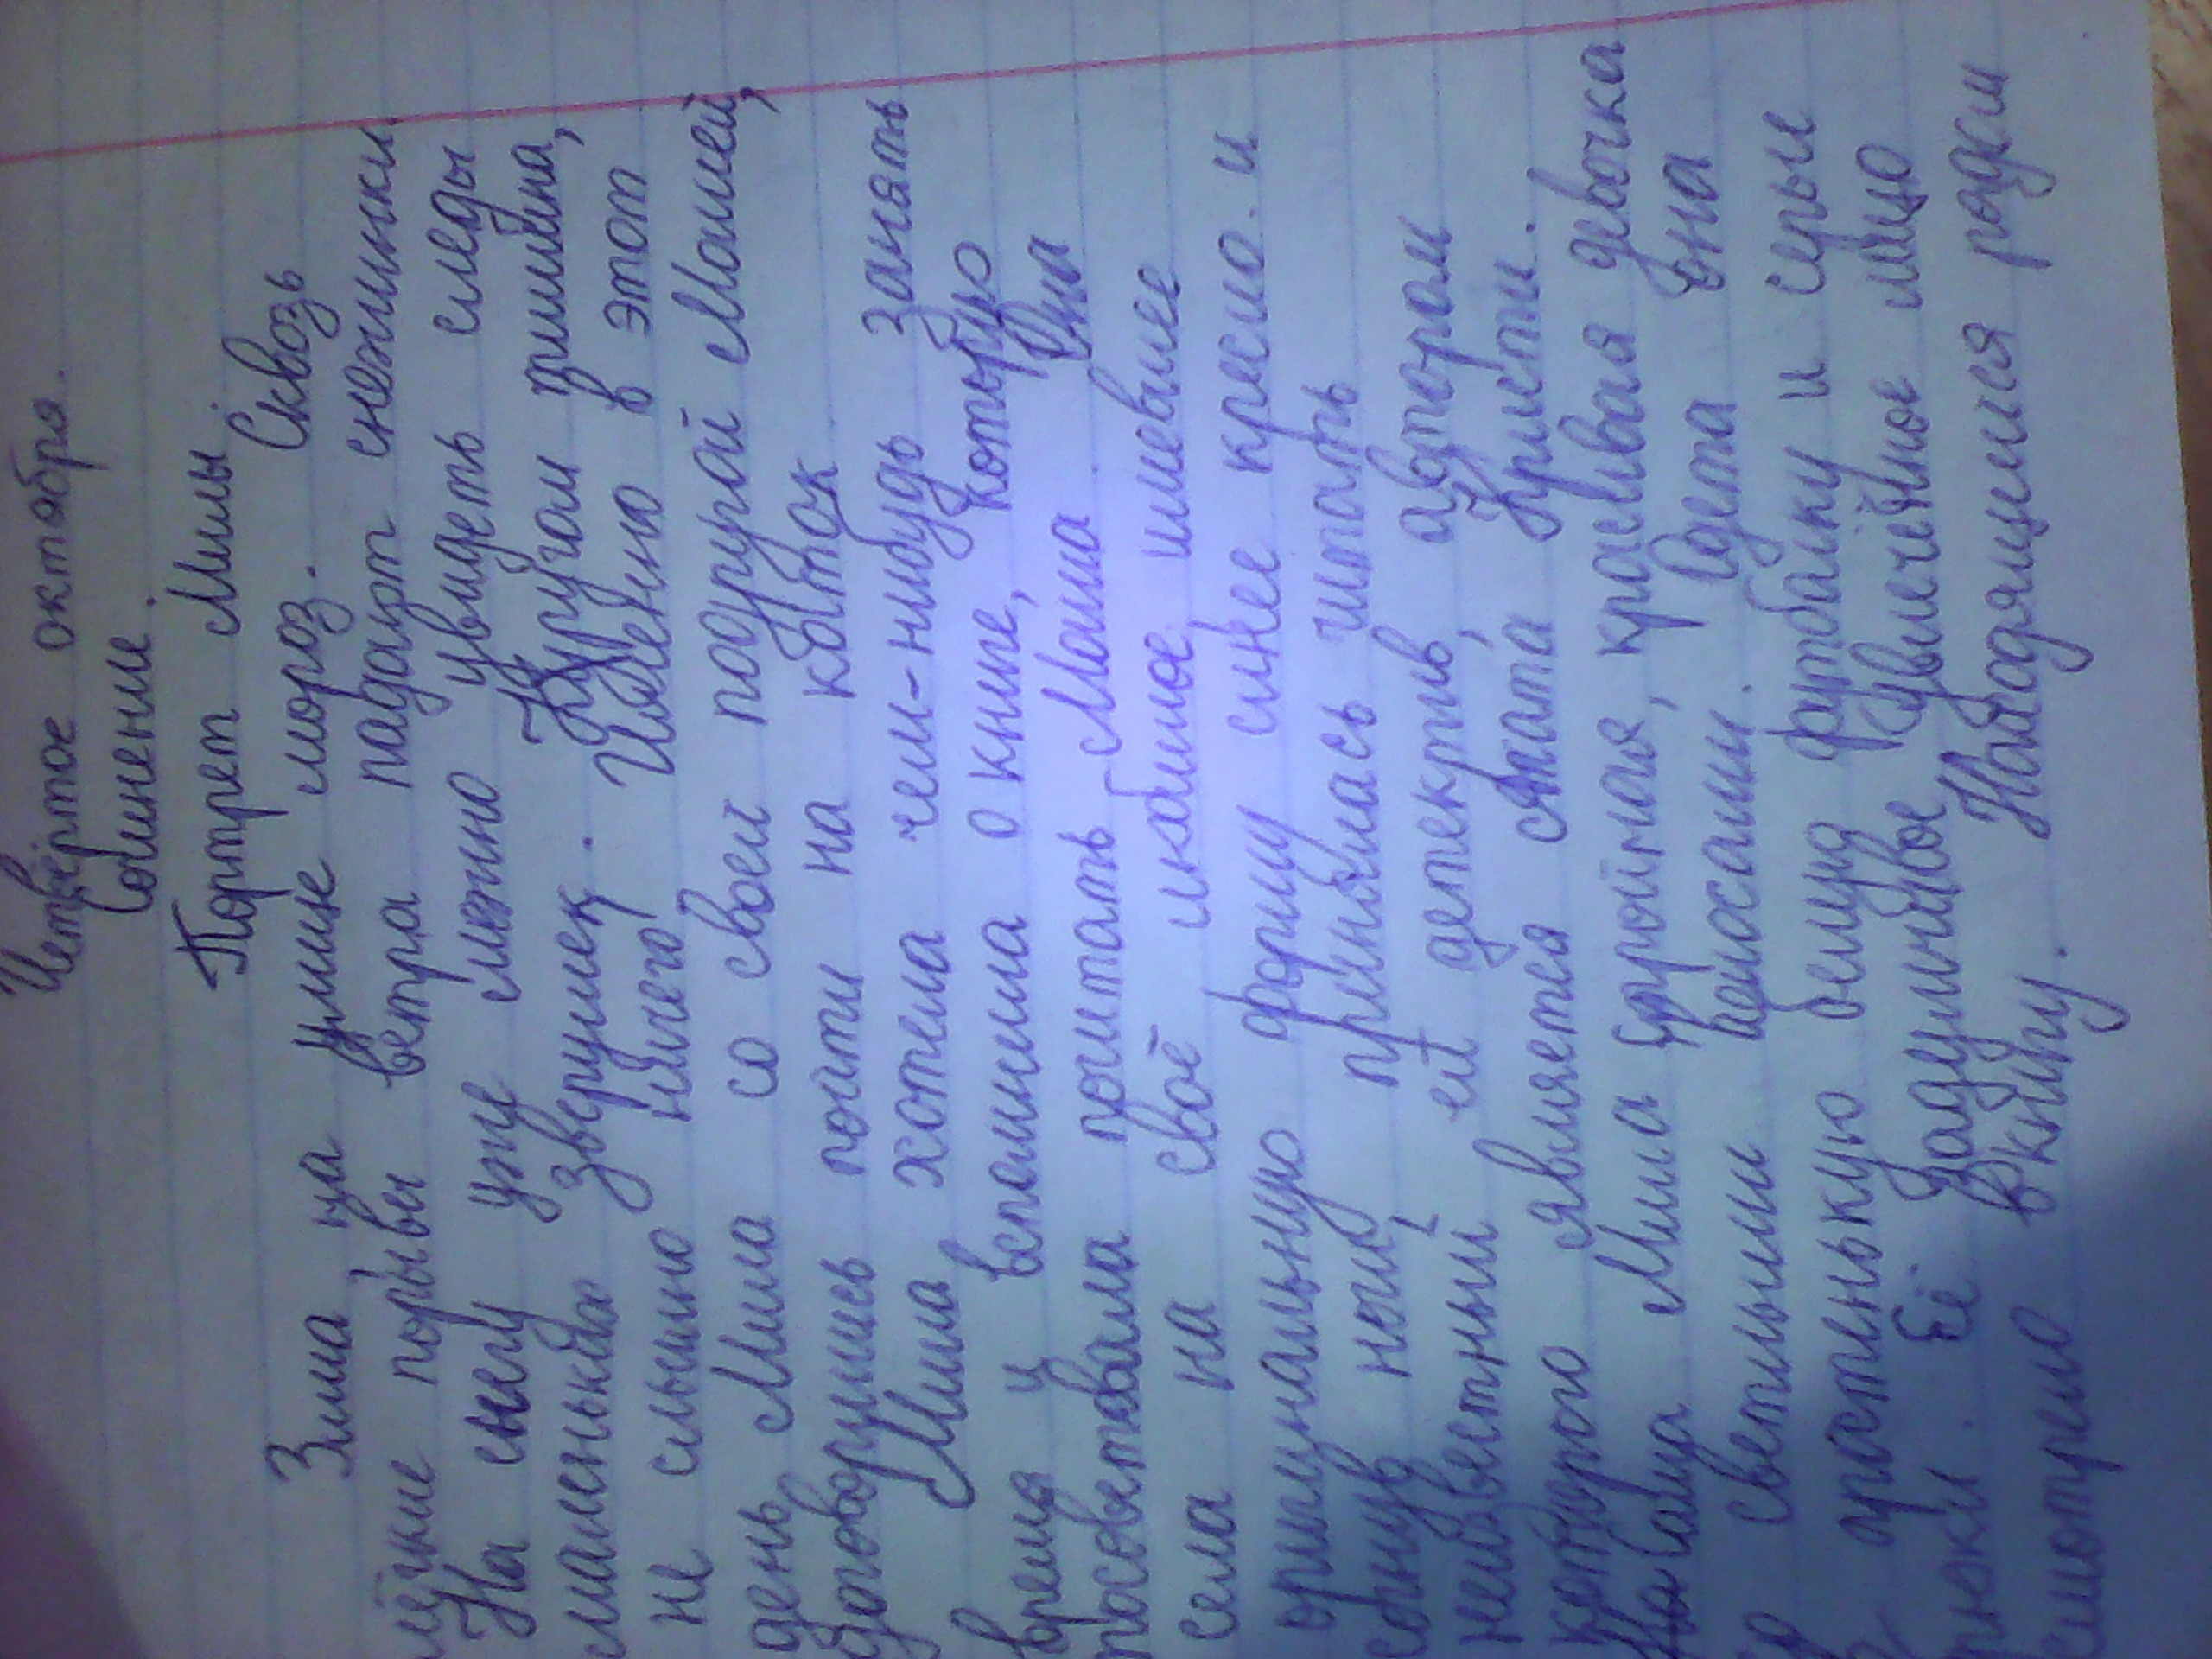 Четвёртое октября.
Сочинение.
Портрет Милы.
Зима на улице мороз. Сквозь
лёгкие порывы ветра падают снежинки.
На снегу уже можно увидеть следы
маленьких зверушек. Кругом тишина,
не слышно ничего. Именно в этот
день Мила со своей подругой Машей,
договорились пойти на каток
Мила хотела чем-нибудь занять
время и вспомнила о книге, которую
посоветовала почитать Маша. Она
села на своё любимое имевшее
оригинальную форму синее кресло. и
согнув ноги, принялась читать
неизвестный ей детектив, автором
которого является Агата Кристи.
Мила стройная, красивая девочка
со светлыми волосами. Одета она
в простенькую белую футболку и серые
брюки. Её задумчивое увлечённое лицо
смотрело в книгу. Находящийся рядом